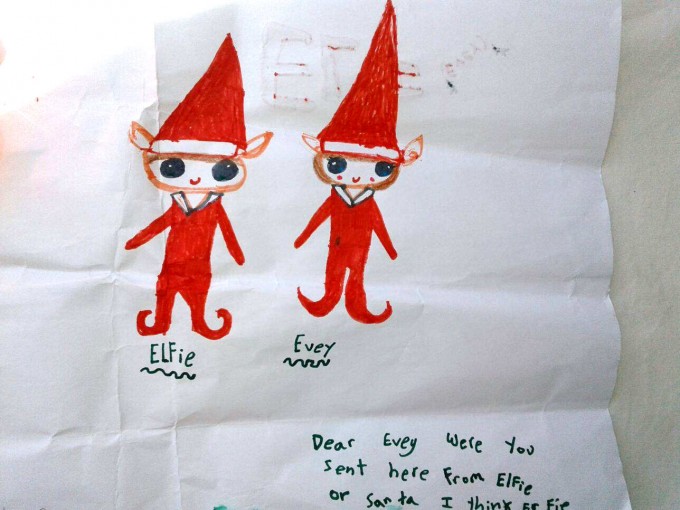 ELFie
Evey
Dear Evey Were You
sent here From ElFie
or Santa I think